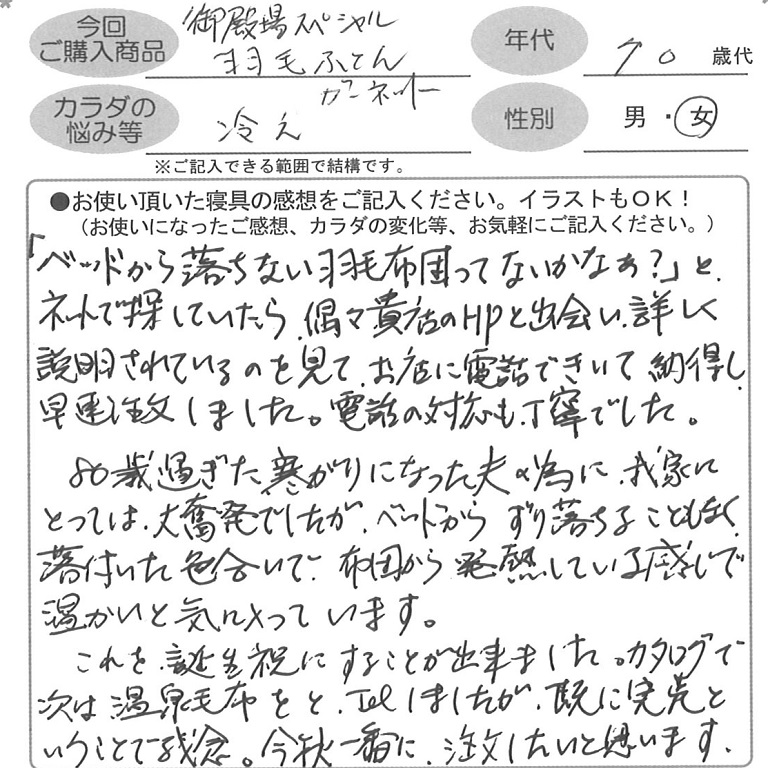 今回
ご購入商品
御殿場スペシャル
羽毛ふとん
ガーネット
年代
70 歳代
カラダの
悩み等
冷え
性別
男・女
※ご記入できる範囲で結構です。
●お使い頂いた寝具の感想をご記入ください。イラストもOK！
（お使いになったご感想、カラダの変化等、お気軽にご記入ください。）
「ベッドから落ちない羽毛布団ってないかなぁ？」と、
ネットで探していたら、偶々貴店のHPと出会い、詳しく
説明されているのを見て、お店に電話できいて納得し、
早速注文しました。電話の対応も、丁寧でした。
80歳過ぎた寒がりになった夫の為に、我家に
とっては、大奮発でしたが、ベットからずり落ちることもなく、
落付いた色合いで、布団から発熱している感じで
温かいと気に入っています。
これを、誕生祝にすることが出来ました。カタログで
次は、温泉毛布をと、Telしましたが、既に完売と
いうことで残念。今秋一番に、注文したいと思います。